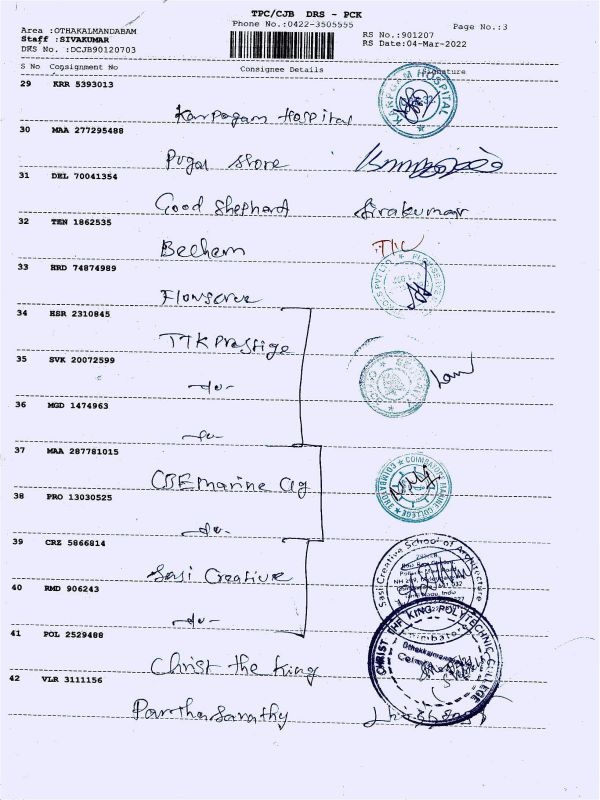 TPC/CJB DRS - PCK
Phone No.:0422-3505555
Page No.:3
Area :OTHAKALMANDABAM
Staff :SIVAKUMAR
DRS No. :DCJB90120703
RS No.:901207
RS Date:04-Mar-2022
S No Consignment No Consignee Details Signature
29 KRR 5393013
Karpagam Hospital
KARPAGAM HOSPITAL
30 MAA 277295488
Pugal store
31 DEL 70041354
Good Shepherd Sivakumar
32 TEN 1862535
33 HRD 74874989
Flowserve
34 HSR 2310845
TTK Prestige
35 SVK 20072599
-do-
36 MGD 1474963
-do-
37 MAA 287781015
CBE Marine Clg
COIMBATORE MARINE COLLEGE COIMBATORE
38 PRO 13030525
-do-
39 CRZ 5866814
Sasi Creative
Sasi Creative School of Architecture
40 RMD 906243
-do-
41 POL 2529488
Christ the King
CHRIST THE KING POLYTECHNIC COLLEGE
42 VLR 3111156
Parthasarathy